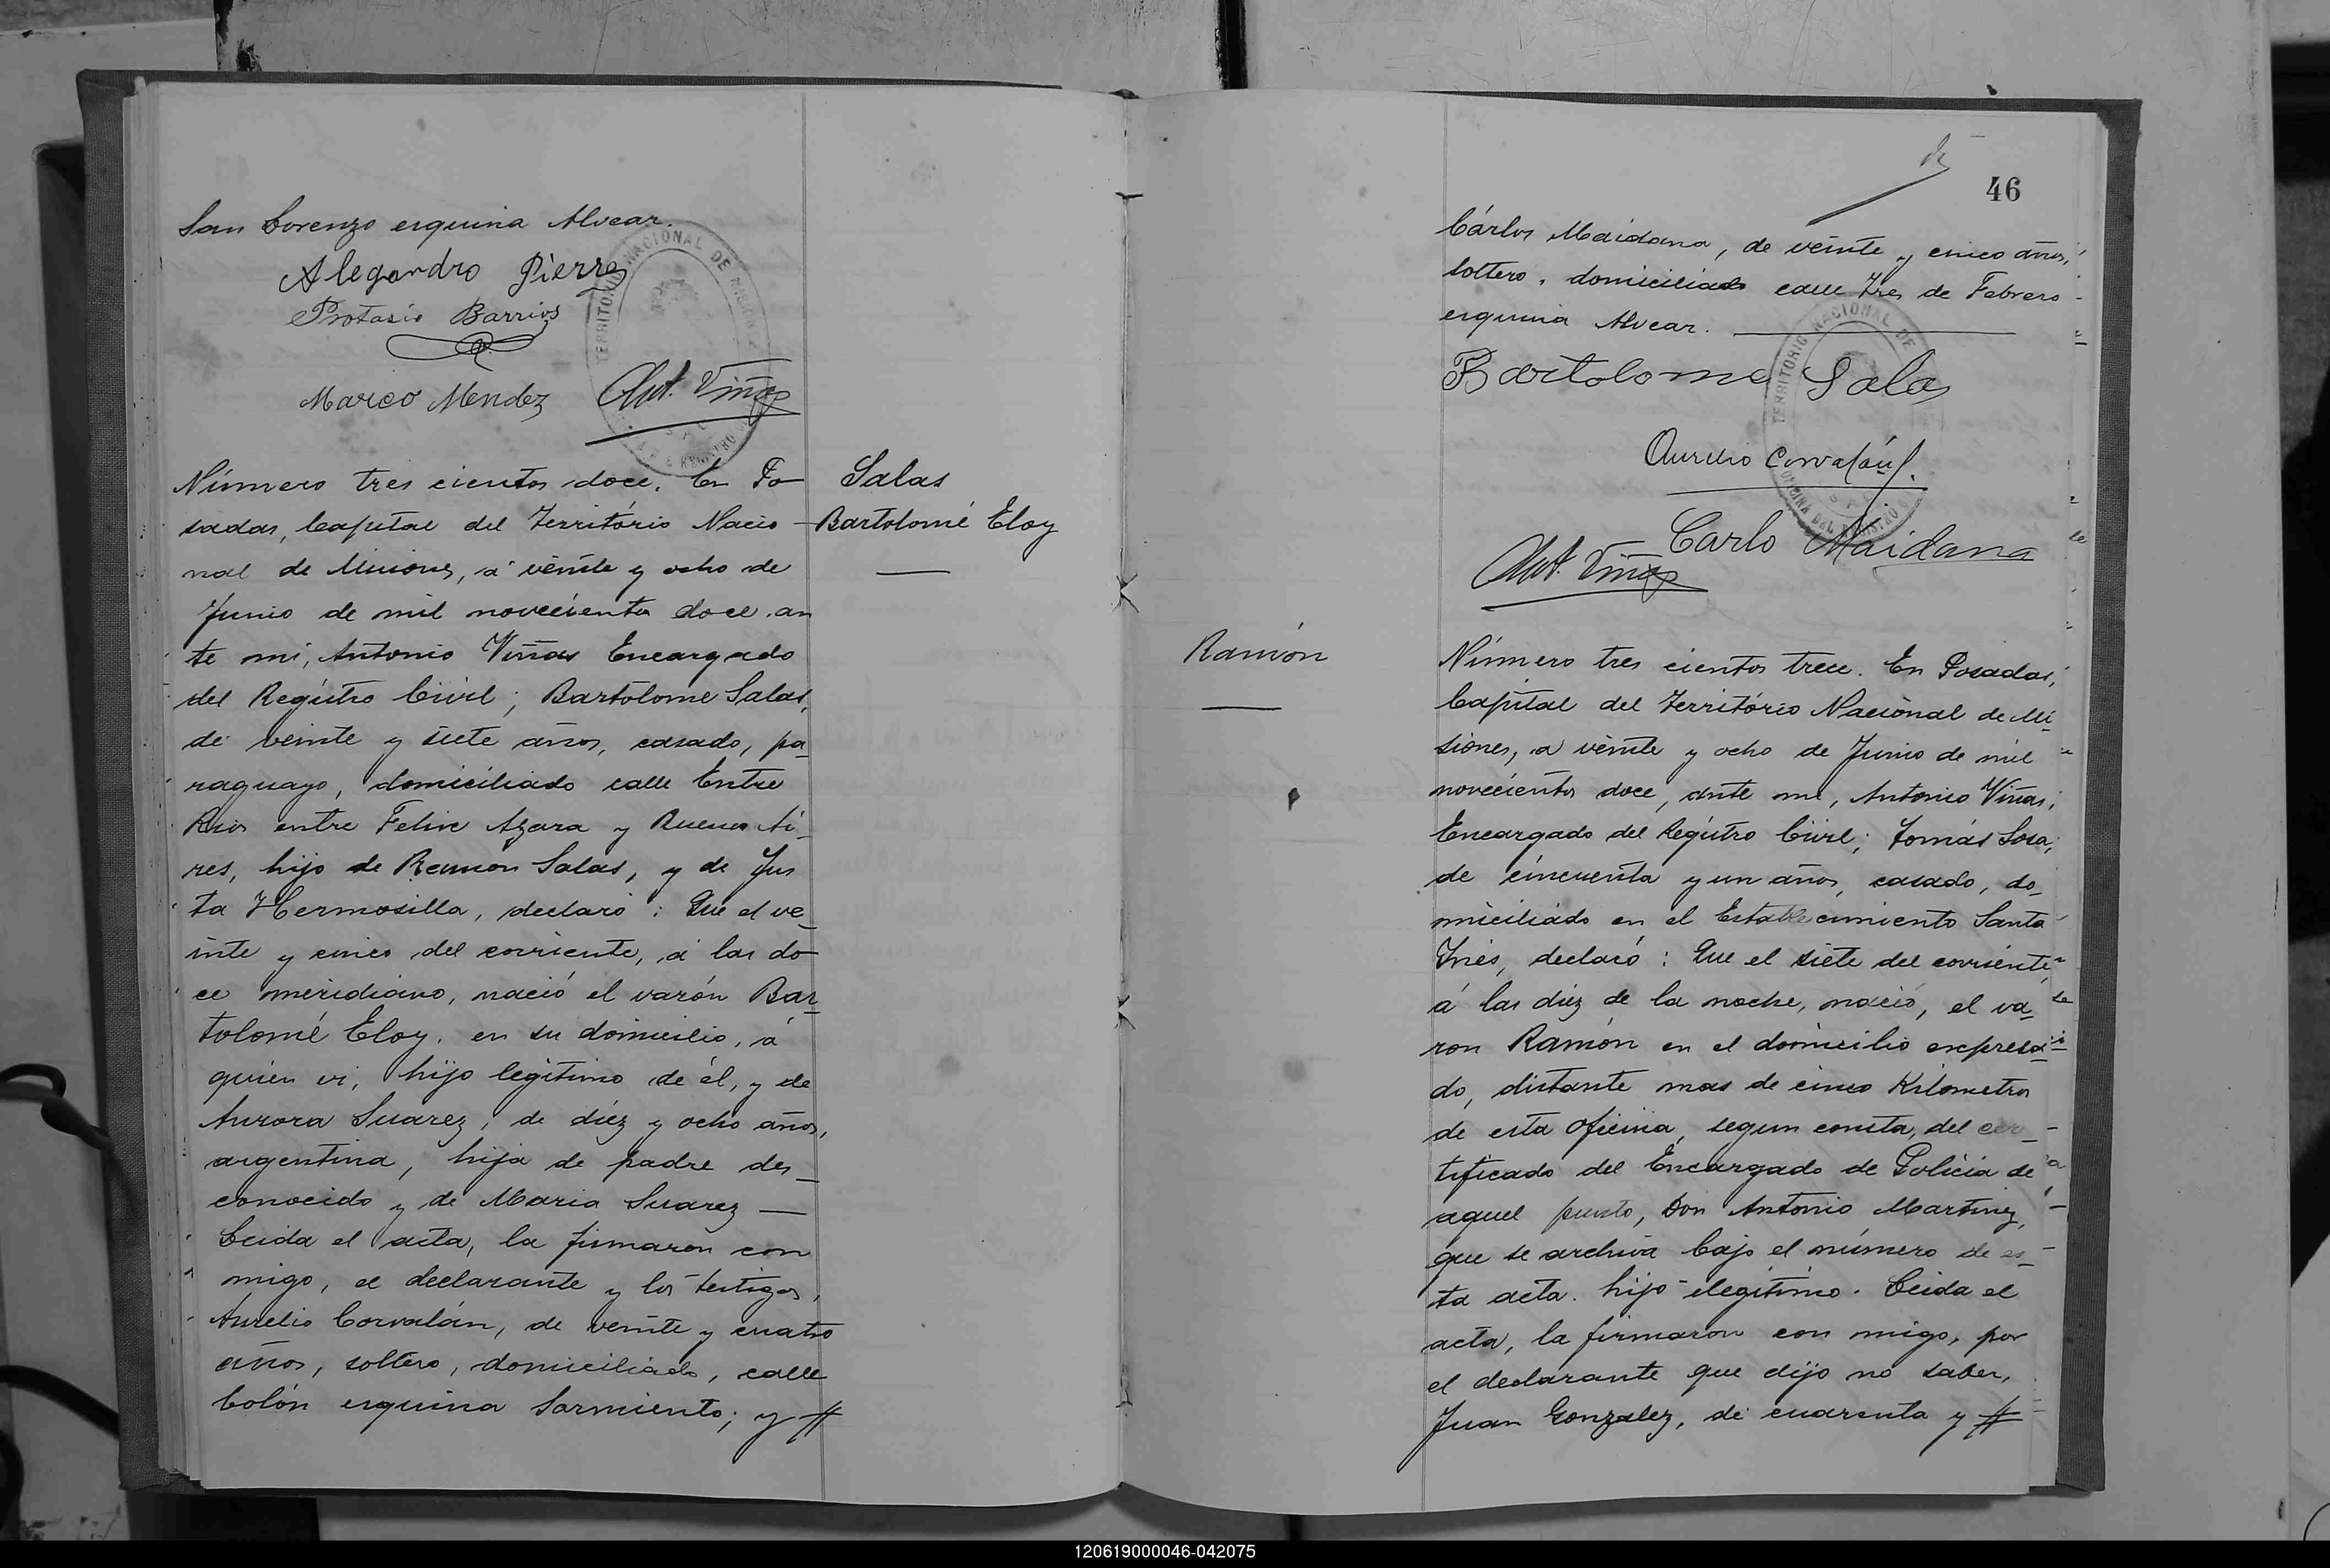 San Lorenzo esquina Alvear.
Alegandro Pierre
Protasio Barrios
Marco Mendez
Ant. Viñas
TERRITORIO NACIONAL DE MISIONES
Salas
Bartolomé Eloy
Número tres cientos doce. En Po
sadas, Capital del Território Nacio
nal de Misiones, á veinte y ocho de
Junio de mil novecientos doce, an
te mi, Antonio Viñas Encargado
del Registro Civil; Bartolome Salas,
de veinte y siete años, casado, pa
raguayo, domiciliado calle Entre
Rios entre Felix Azara y Buenos Ai
res, hijo de Ramon Salas, y de Jus
ta Hermosilla, declaró: Que el ve
inte y cinco del corriente, á las do
ce meridiano, nació el varón Bar
tolomé Eloy, en su domicilio, á
quien vi, hijo legítimo de él, y de
Aurora Suarez, de diez y ocho años,
argentina, hija de padre des
conocido y de Maria Suarez —
Leida el acta, la firmaron con
migo, el declarante y los testigos,
Aurelio Corvalán, de veinte y cuatro
años, soltero, domiciliado, calle
Colón esquina Sarmiento; y #
46
Cárlos Maidana, de veinte y cinco años,
soltero, domiciliado calle Tres de Febrero
esquina Alvear.
TERRITORIO NACIONAL DE
OFICINA DEL REGISTRO
Bartolome Salas
Aurelio Corvalán
Carlo Maidana
Ant. Viñas
Ramón
Número tres cientos trece. En Posadas,
Capital del Território Nacional de Mi
siones, a veinte y ocho de Junio de mil
novecientos doce, ante mi, Antonio Viñas,
Encargado del Registro Civil; Tomás Sosa,
de cincuenta y un años, casado, do
miciliado en el Establecimiento Santa
Inés, declaró: Que el siete del corriente
á las diez de la noche, nació, el va
ron Ramón en el domicilio expresa
do, distante mas de cinco Kilometros
de esta oficina, segun consta, del cer
tificado del Encargado de Policia de
aquel punto, Don Antonio Martinez,
que se archiva bajo el número de es
ta acta. hijo ilegítimo. Leida el
acta, la firmaron con migo, por
el declarante que dijo no saber,
Juan Gonzalez, de cuarenta y #
120619000046-042075